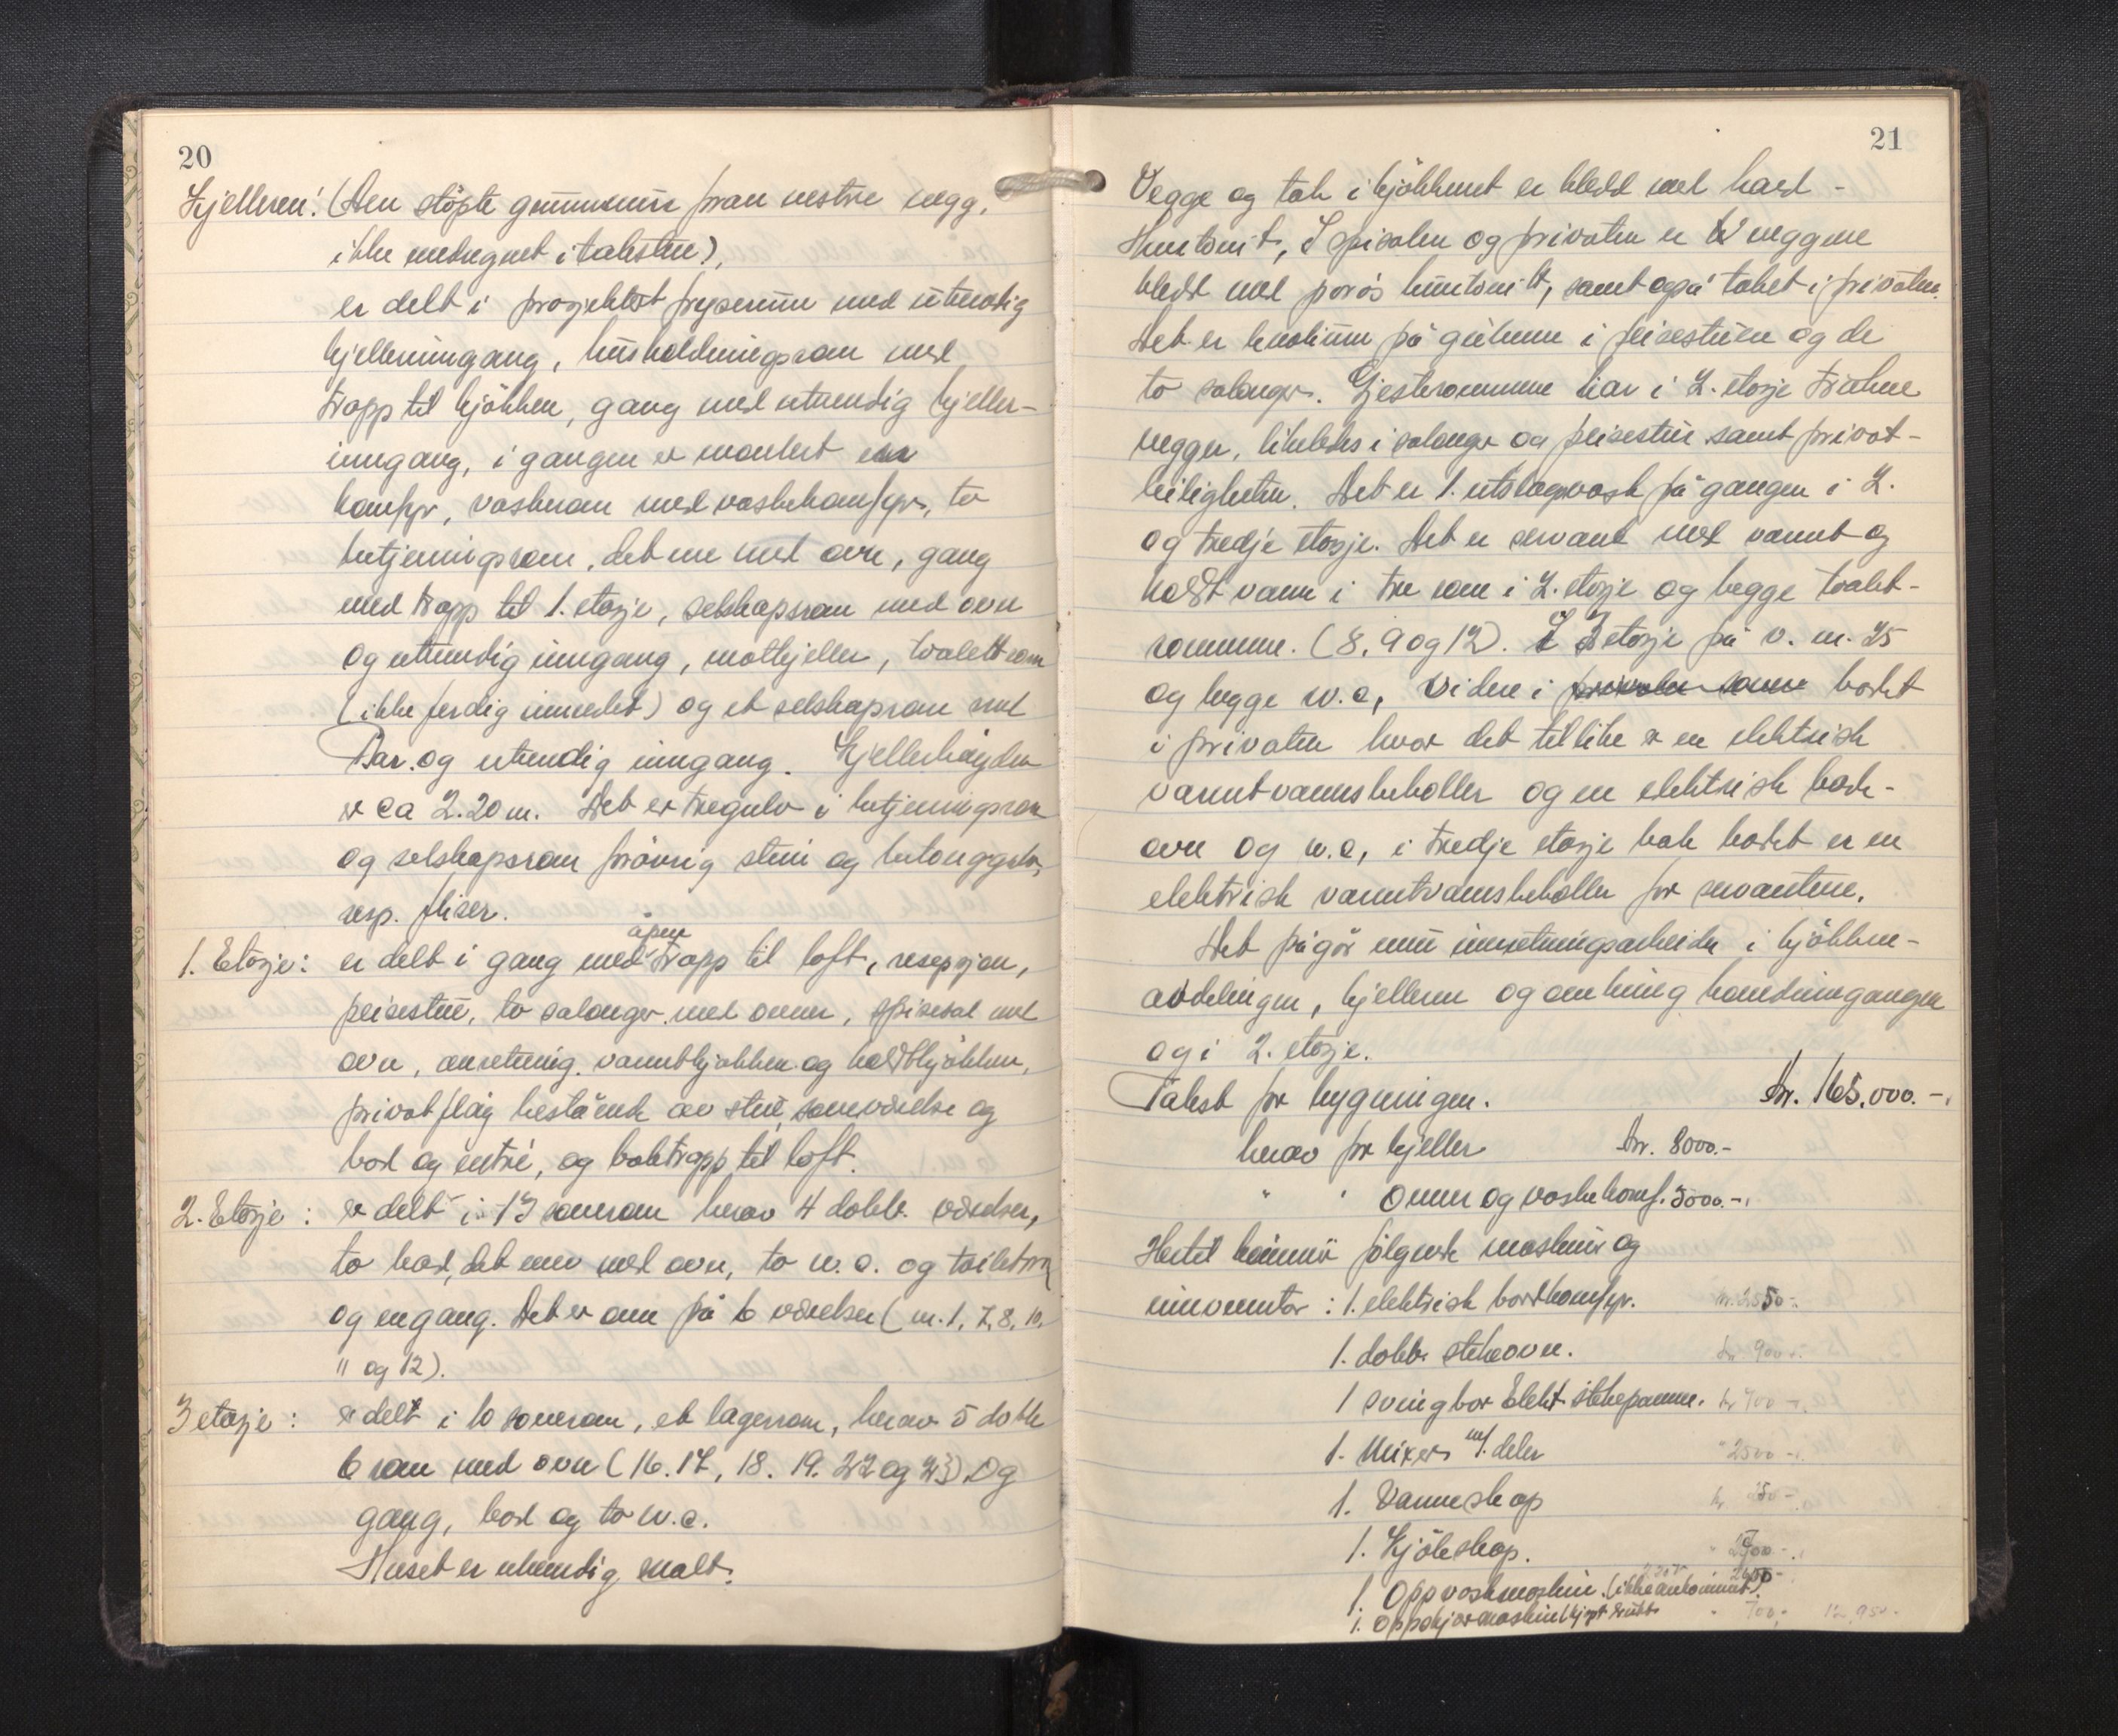 20
Kjelleren: (Den støpte grunnmur foran vestre vegg,
ikke medregnet i taksten),
er delt i prosjektert fryserum med utvendig
kjellerinngang, husholdningsrom med
trapp til kjøkken, gang med utvendig kjeller-
inngang, i gangen er montert en
komfyr, vaskerom med vaskekomfyr, to
betjeningsrom, det ene med ovn, gang
med trapp til 1. etasje, selskapsrom med ovn
og utvendig inngang, matkjeller, toalettrom
(ikke ferdig innredet) og et selskapsrom med
Bar og utvendig inngang. Kjellerhøyden
er ca 2.20 m. Det er tregulv i betjeningsrom
og selskapsrom forøvrig stein og betonggulv,
resp. fliser.
1. Etasje: er delt i gang med åpen trapp til loft, resepsjon,
peisestue, to salonger med ovner, spisesal med
ovn, anretning, varmtkjøkken og koldtkjøkken,
privatfløy bestående av stue, soveværelse og
bad og entré, og baktrapp til loft.
2. Etasje: er delt i 13 soverom herav 4 dobb. værelser,
to bad, det ene med ovn, to w.c. og toilettrom
og en gang. Det er ovn på 6 værelser (nr. 1, 7, 8, 10,
11 og 12).
3 etasje: er delt i 10 soverom, et lagerrom, herav 5 dobble
6 rom med ovn (16. 17, 18. 19. 22 og 23) Og
gang, bad og to w.c.
Huset er utvendig malt.
21
Vegge og tak i kjøkkenet er kledd med hard-
Huntonit, I spisalen og privaten er veggene
kledd med porøs huntonitt, samt også taket i privaten.
Det er linolium på gulvene i peisestuen og de
to salonger. Gjesterommene har i 2. etasje trukne
vegger, likeledes i salonger og peisestue samt privat-
leiligheten. Det er 1. utslagsvask på gangen i 2.
og tredje etasje. Det er servant med varmt og
koldt vann i tre rom i 2. etasje og begge toalet-
rommene. (8, 9 og 12). I 3 etasje på v. nr. 25
og begge w.c, Videre i badet
i privaten hvor det tillike er en elektrisk
varmtvannsbeholler og en elektrisk bade-
ovn og w.c, i tredje etasje bak badet er en
elektrisk varmtvannsbeholler for servantene.
Det pågår nu innretningsarbeider i kjøkken-
avdelingen, kjelleren og omkring hovedinngangen
og i 2. etasje.
Takst for bygningen. kr. 165.000.-.
herav for kjeller kr. 8000.-
" " ovner og vaskekomf. 5000.-.
Hertil kommer følgende maskiner og
innventar: 1. elektrisk bordkomfyr.
1. dobb. stekeovn. kr 900-.
1 svingbar Elekt. stekepanne. kr 700-.
1. Mixer m/. deler " 2500-.
1. Varmeskap kr 250-.
1. Kjøleskap.
1. Oppvaskmaskin. (ikke ankommet)
1. Oppskjærmaskin kjøpt brukt " 700,- 12.950.-